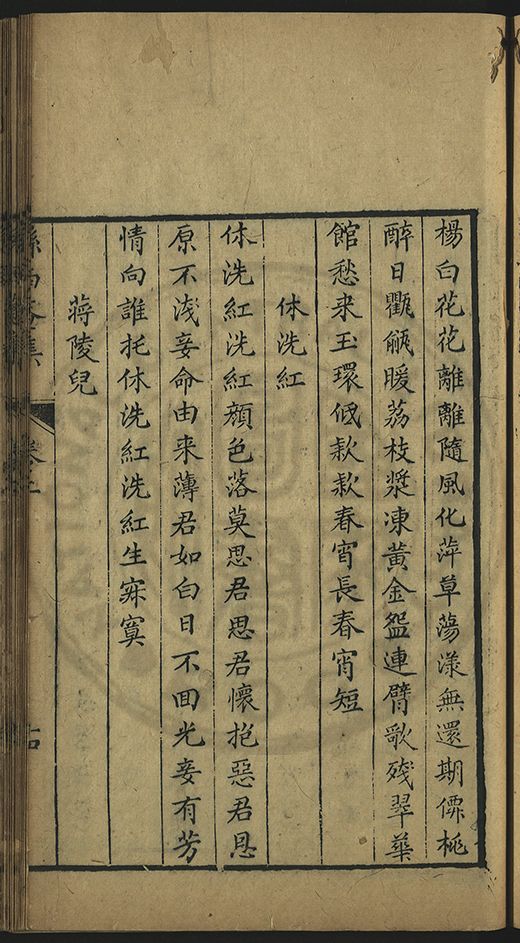 楊白花花離離隨風化萍草蕩漾無還期僄桃
醉日氍毹暖荔枝漿凍黃金盌連臂歌殘翠華
館愁来玉環低欵欵春宵長春宵短
休洗紅
休洗紅洗紅顔色落莫思君思君懷抱惡君恩
原不淺妾命由来薄君如白日不囬光妾有芳
情向誰托休洗紅洗紅生寂寞
蔣陵兒
集 卷二